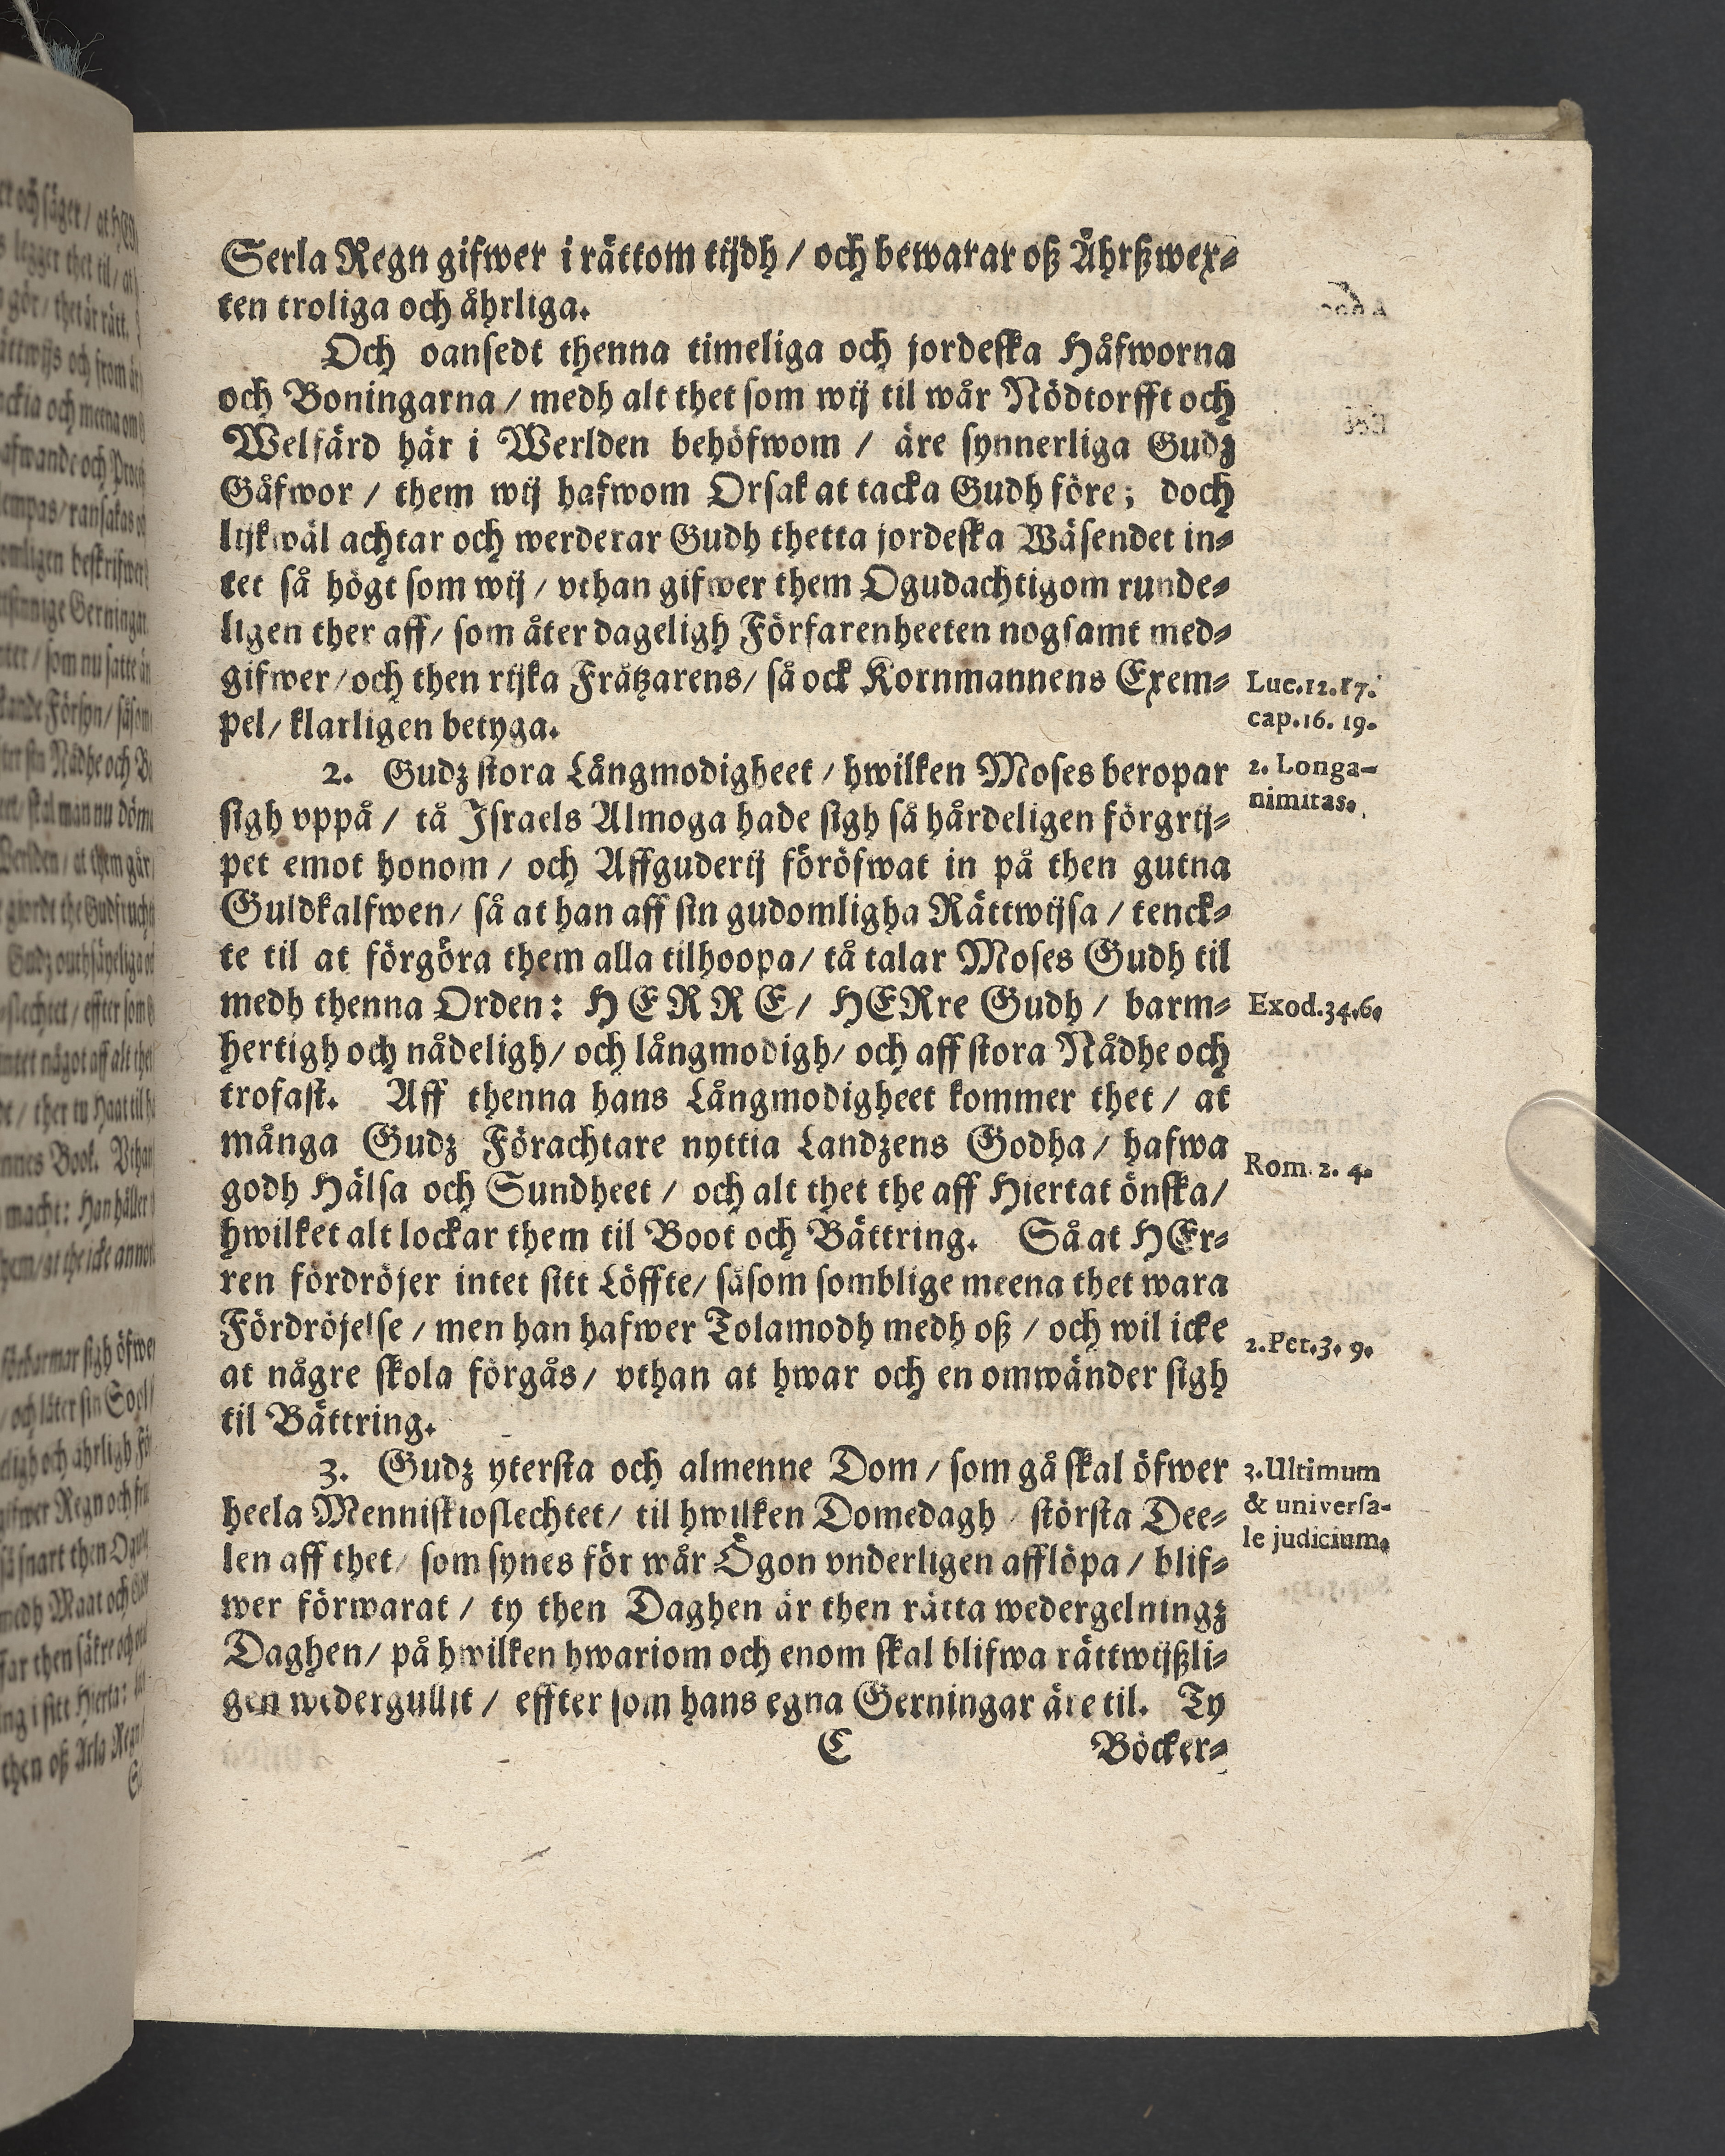 Serla Regn gifwer i rättom tijdh / och bewarar oß Åhrßwex-
ten troliga och åhrliga.
Och oansedt thenna timeliga och jordeska Håfworna
och Boningarna / medh alt thet som wij til wår Nödtorfft och
Welfärd här i Werlden behöfwom / äre synnerliga Gudz
Gåfwor / them wij hafwom Orsak at tacka Gudh före; doch
lijkwäl achtar och werderar Gudh thetta jordeska Wäsendet in-
tet så högt som wij / vthan gifwer them Ogudachtigom runde-
ligen ther aff / som åter dageligh Förfarenheeten nogsamt med-
gifwer / och then rijka Fråtzarens / så ock Kornmannens Exem-
pel / klarligen betyga.
Luc.12.17.
cap.16. 19.
2. Gudz stora Långmodigheet / hwilken Moses beropar
sigh vppå / tå Israels Almoga hade sigh så hårdeligen förgrij-
pet emot honom / och Affguderij föröfwat in på then gutna
Guldkalfwen / så at han aff sin gudomligha Rättwijsa / tenck-
te til at förgöra them alla tilhoopa / tå talar Moses Gudh til
medh thenna Orden: HERRE / HERre Gudh / barm-
hertigh och nådeligh / och långmodigh / och aff stora Nådhe och
trofast. Aff thenna hans Långmodigheet kommer thet / at
många Gudz Förachtare nyttia Landzens Godha / hafwa
godh Hälsa och Sundheet / och alt thet the aff Hiertat önska /
hwilket alt lockar them til Boot och Bättring. Så at HEr-
ren fördröjer intet sitt Löffte / såsom somblige meena thet wara
Fördröjelse / men han hafwer Tolamodh medh oß / och wil icke
at någre skola förgås / vthan at hwar och en omwänder sigh
til Bättring.
2. Longa-
nimitas.
Exod.34.6.
Rom. 2. 4.
2.Pet.3. 9.
3. Gudz ytersta och almenne Dom / som gå skal öfwer
heela Menniskioslechtet / til hwilken Domedagh / största Dee-
len aff thet / som synes för wår Ögon vnderligen afflöpa / blif-
wer förwarat / ty then Daghen är then rätta wedergelningz
Daghen / på hwilken hwariom och enom skal blifwa rättwijßli-
gen wedergullit / effter som hans egna Gerningar äre til. Ty
3.Ultimum
& universa-
le judicium.
C
Böcker-